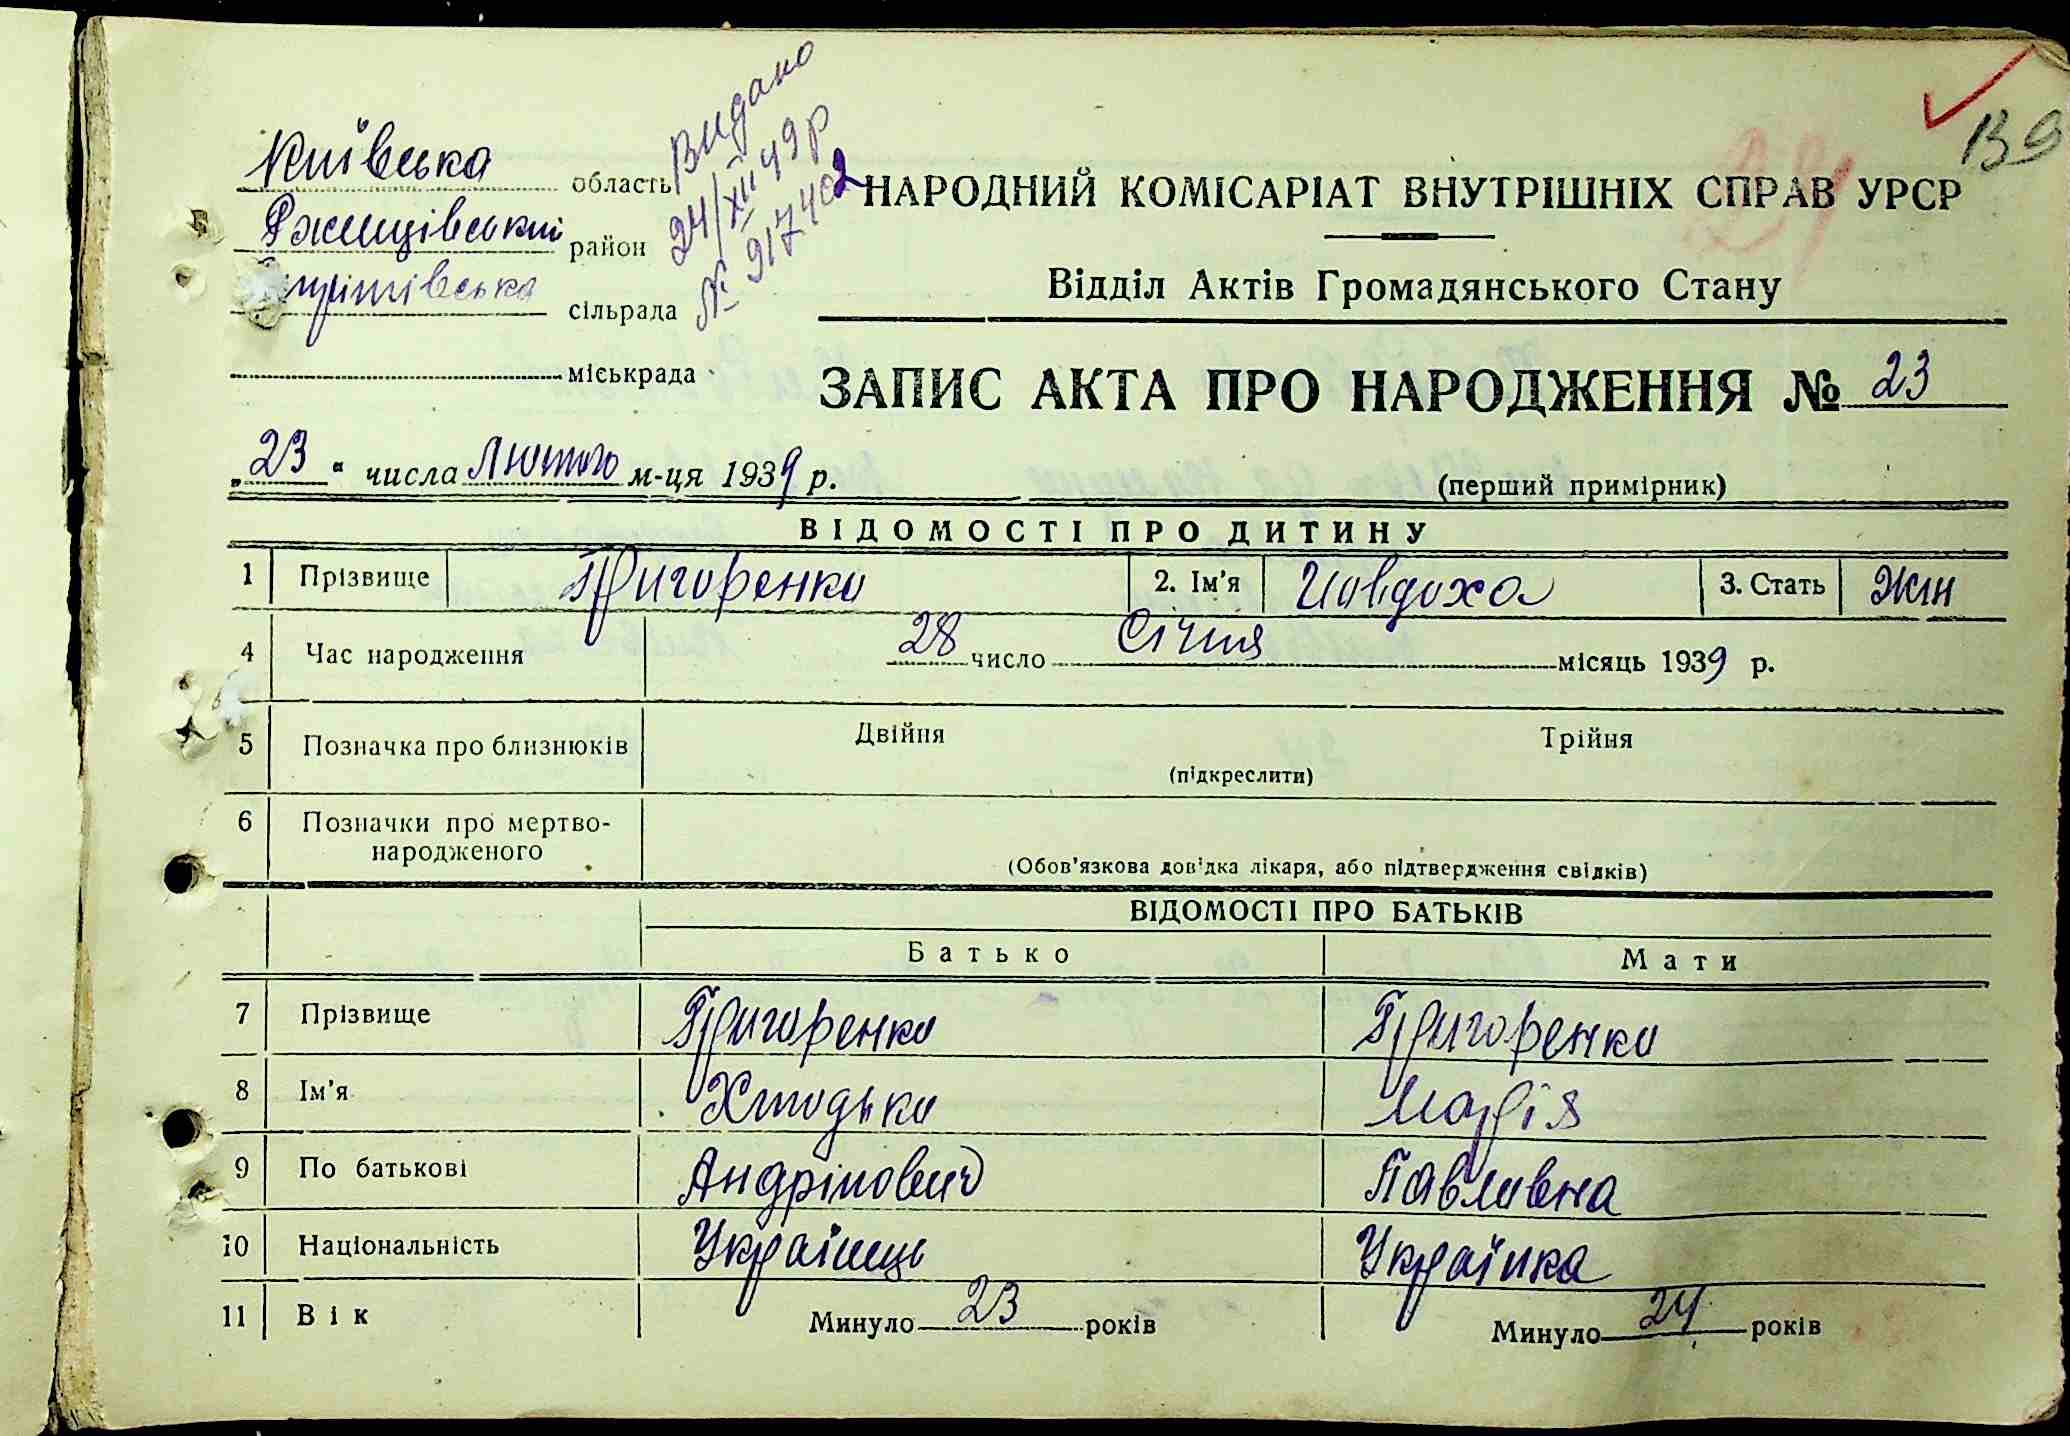 Київська область
Ржищівський район
сільрада
міськрада
Видано
24/XII 49р
№
НАРОДНИЙ КОМІСАРІАТ ВНУТРІШНІХ СПРАВ УРСР
139
Відділ Актів Громадянського Стану
ЗАПИС АКТА ПРО НАРОДЖЕННЯ № 23
„23“ числа Лютого м-ця 1939 р.
(перший примірник)
ВІДОМОСТІ ПРО ДИТИНУ
1 Прізвище Григоренко 2. Ім'я Човдоха 3. Стать Жін
4 Час народження 28 число Січня місяць 1939 р.
5 Позначка про близнюків Двійня Трійня
(підкреслити)
6 Позначки про мертво-
народженого
(Обов'язкова довідка лікаря, або підтвердження свідків)
ВІДОМОСТІ ПРО БАТЬКІВ
Батько Мати
7 Прізвище Григоренко Григоренко
8 Ім'я Марія
9 По батькові Андрійович Павловна
10 Національність Українець Українка
11 Вік Минуло 23 років Минуло 24 років